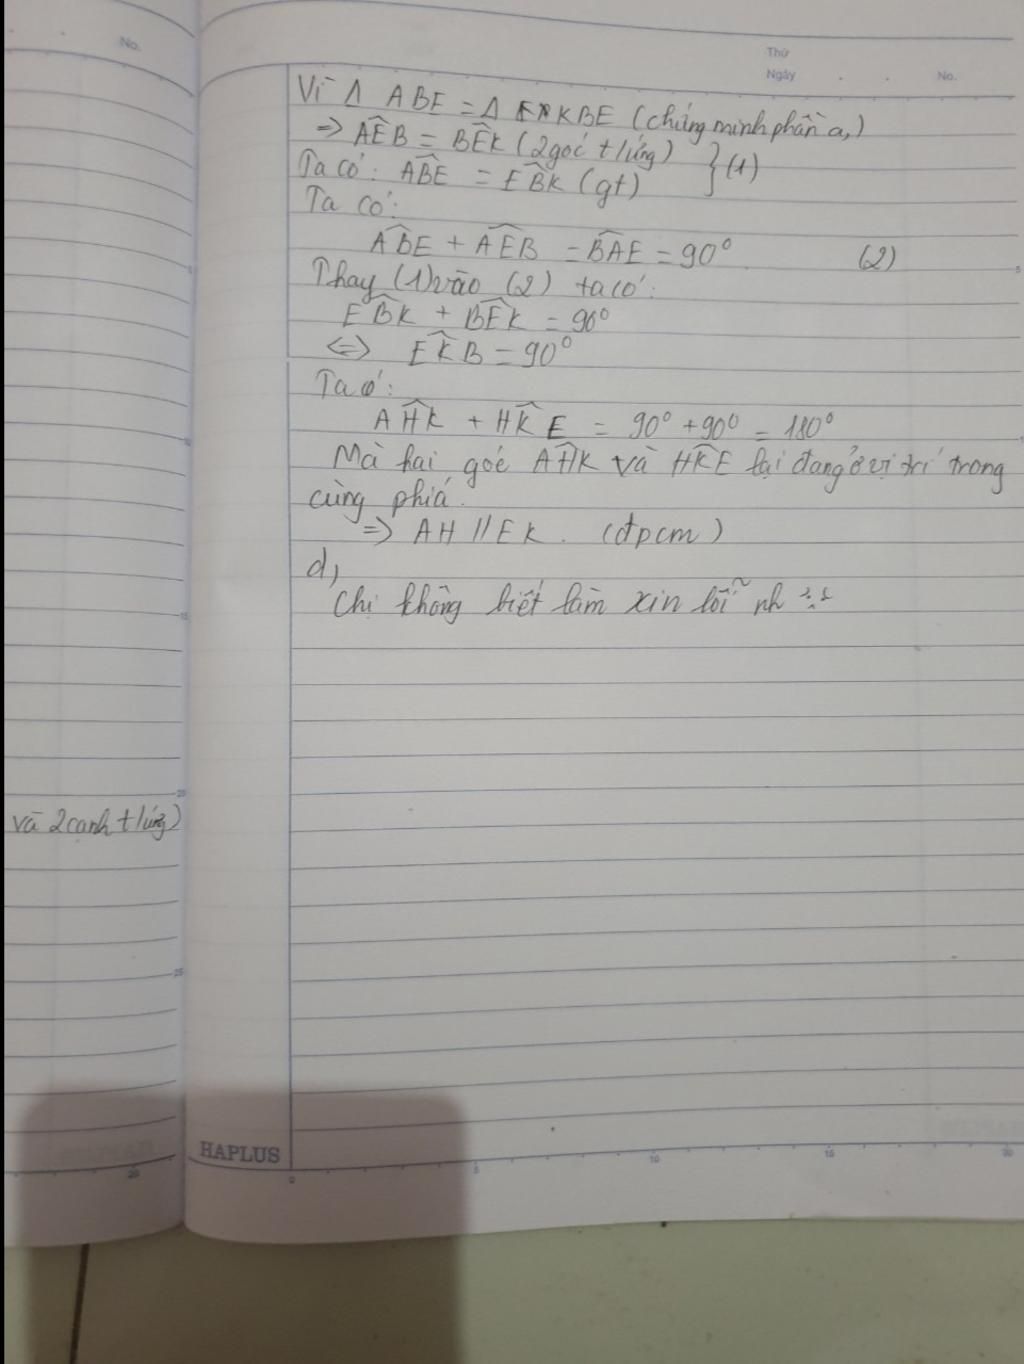 No.
Thứ
Ngày
No.
Vì Δ ABE = Δ KBE (chứng minh phần a,)
=> AÊB = BÊK (2 góc t/ứng)
Ta có: ABE = EBK (gt) } (1)
Ta có:
ABE + AEB = BAE = 90° (2)
Thay (1) vào (2) ta có:
EBK + BEK = 90°
<=> EKB = 90°
Ta có:
AHK + HKE = 90° + 90° = 180°
Mà hai góc AHK và HKE lại đang ở vị trí trong
cùng phía.
=> AH // EK. (đpcm)
d,
Chị không biết làm xin lỗi nh
và 2 cạnh t/ứng)
HAPLUS
0 5 10 15 20